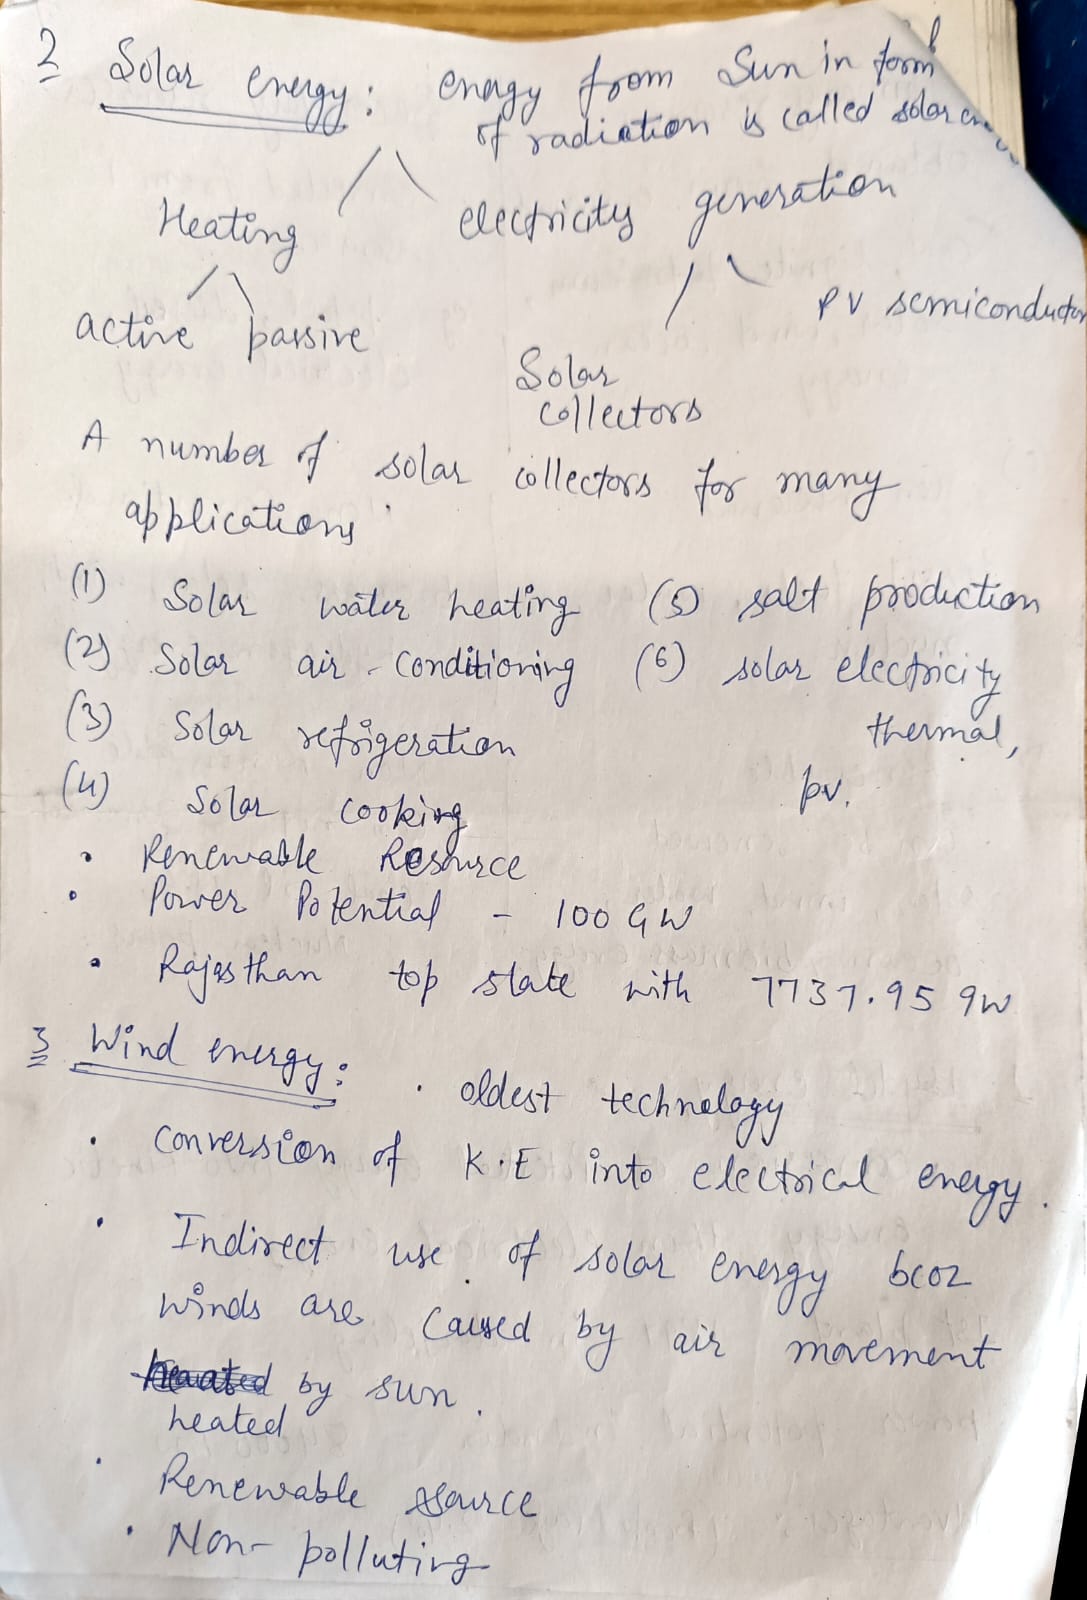 2 Solar energy: energy from Sun in form
of radiation is called solar
Heating electricity generation
active passive PV semiconductor
Solar
collectors
A number of solar collectors for many
applications
(1) Solar water heating (5) salt production
(2) Solar air-conditioning (6) solar electricity
(3) Solar refrigeration thermal,
(4) Solar cooking pv.
• Renewable Resource
• Power Potential - 100 GW
• Rajasthan top state with 7737.95 GW
3 Wind energy: • oldest technology
• Conversion of K.E into electrical energy.
• Indirect use of solar energy bcoz
winds are caused by air movement
heated by sun.
heated
• Renewable source
• Non-polluting